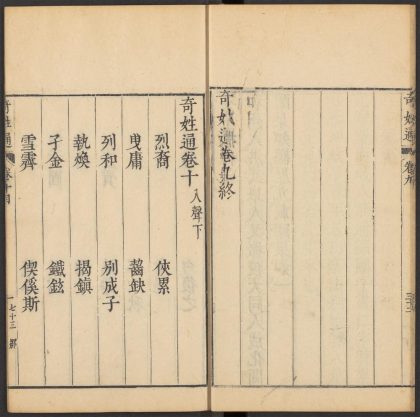 奇姓通 卷九
奇姓通卷九終
奇姓通卷十 入聲下
烈裔 俠累
曳庸 齧缺
列和 別成子
執煥 揭鎮
孑金 鐵鉉
雪霽 偰傒斯
奇姓通 卷十
一 七十三